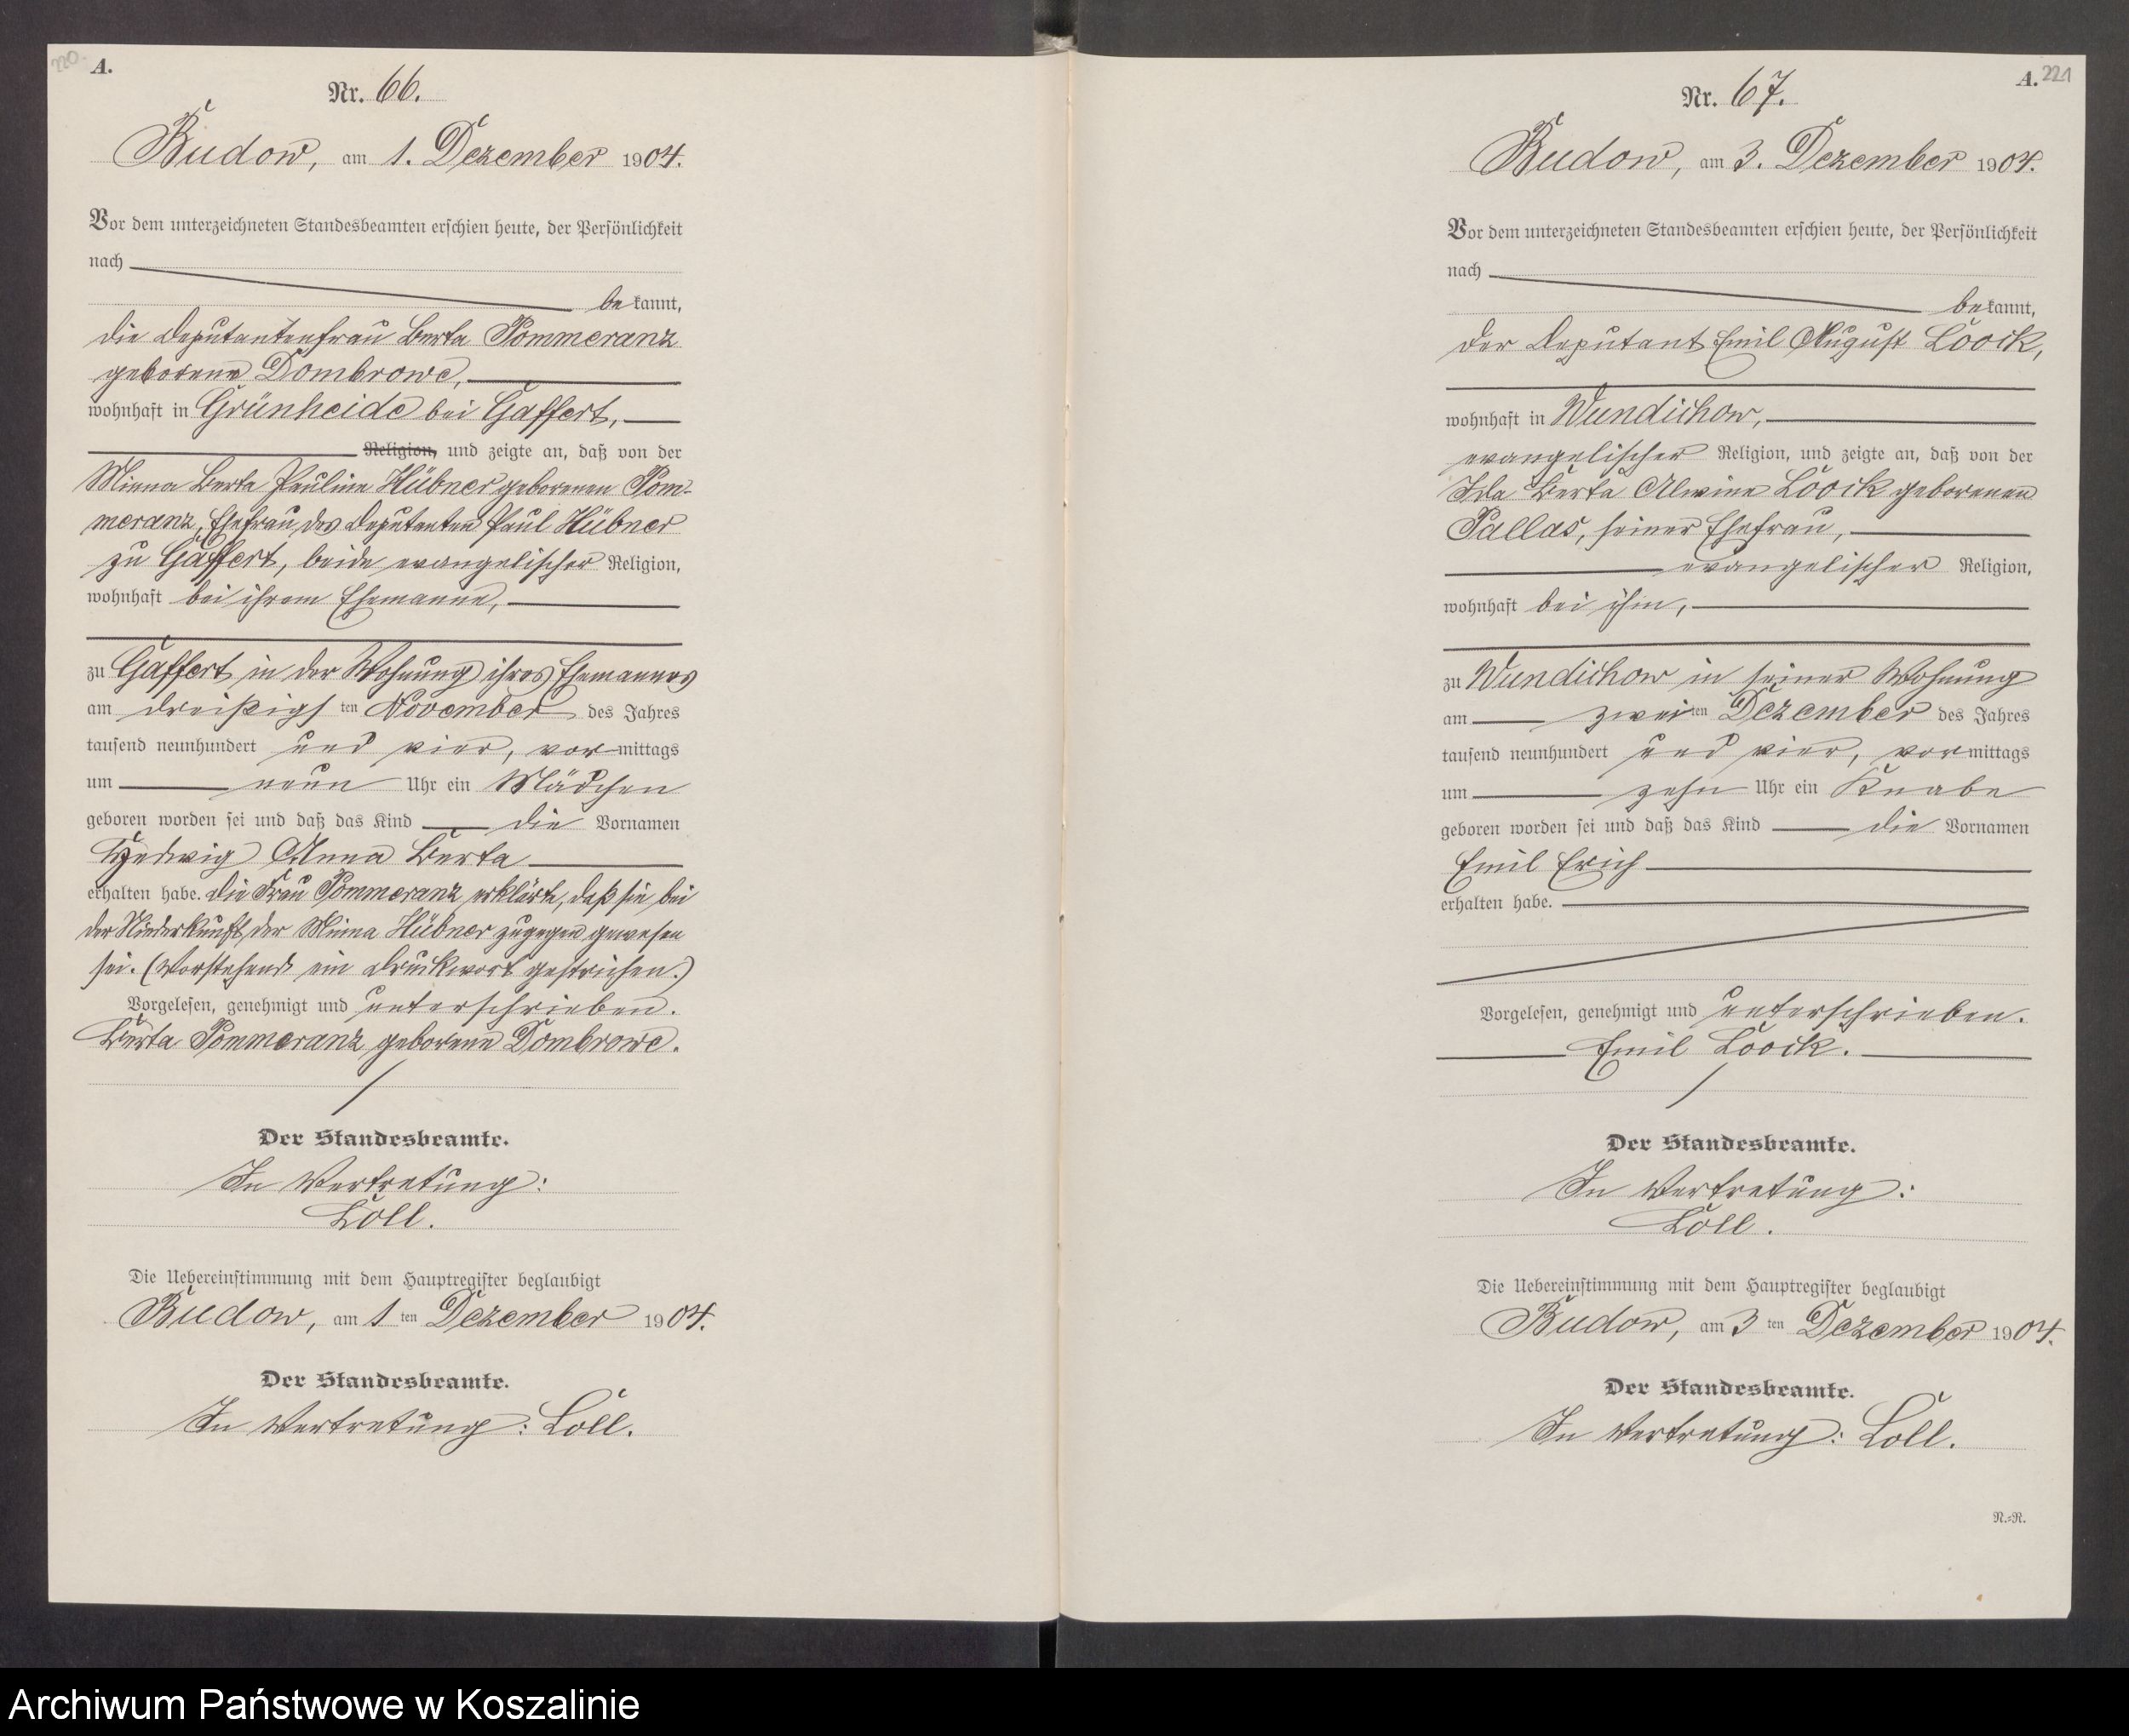 220.
A.
Nr. 66.
Budow, am 1. Dezember 1904.
Vor dem unterzeichneten Standesbeamten erschien heute, der Persönlichkeit
nach
bekannt,
die Deputantenfrau Berta Pommeranz
geborene Dombrowe,
wohnhaft in Grünheide bei Gaffert,
Religion, und zeigte an, daß von der
Minna Berta Pauline Hübner geborenen Pom-
meranz, Ehefrau des Deputanten Paul Hübner
zu Gaffert, beide evangelischer Religion,
wohnhaft bei ihrem Ehemanne,
zu Gaffert in der Wohnung ihres Ehemannes
am dreißigsten November des Jahres
tausend neunhundert und vier, vormittags
um neun Uhr ein Mädchen
geboren worden sei und daß das Kind die Vornamen
Hedwig Anna Berta
erhalten habe. Die Frau Pommeranz erklärte, daß sie bei
der Niederkunft der Minna Hübner zugegen gewesen
sei. (Vorstehend ein Druckwort gestrichen.)
Vorgelesen, genehmigt und unterschrieben.
Berta Pommeranz geborene Dombrowe.
Der Standesbeamte.
In Vertretung:
Loll.
Die Uebereinstimmung mit dem Hauptregister beglaubigt
Budow, am 1ten Dezember 1904.
Der Standesbeamte.
In Vertretung: Loll.
A. 221
Nr. 67.
Budow, am 3. Dezember 1904.
Vor dem unterzeichneten Standesbeamten erschien heute, der Persönlichkeit
nach
bekannt,
der Deputant Emil August Loock,
wohnhaft in Wundichow,
evangelischer Religion, und zeigte an, daß von der
Ida Berta Alwine Loock geborenen
Pallas, seiner Ehefrau,
evangelischer Religion,
wohnhaft bei ihm,
zu Wundichow in seiner Wohnung
am zweiten Dezember des Jahres
tausend neunhundert und vier, vormittags
um zehn Uhr ein Knabe
geboren worden sei und daß das Kind die Vornamen
Emil Erich
erhalten habe.
Vorgelesen, genehmigt und unterschrieben.
Emil Loock.
Der Standesbeamte.
In Vertretung:
Loll.
Die Uebereinstimmung mit dem Hauptregister beglaubigt
Budow, am 3ten Dezember 1904.
Der Standesbeamte.
In Vertretung: Loll.
N.=R.
Archiwum Państwowe w Koszalinie